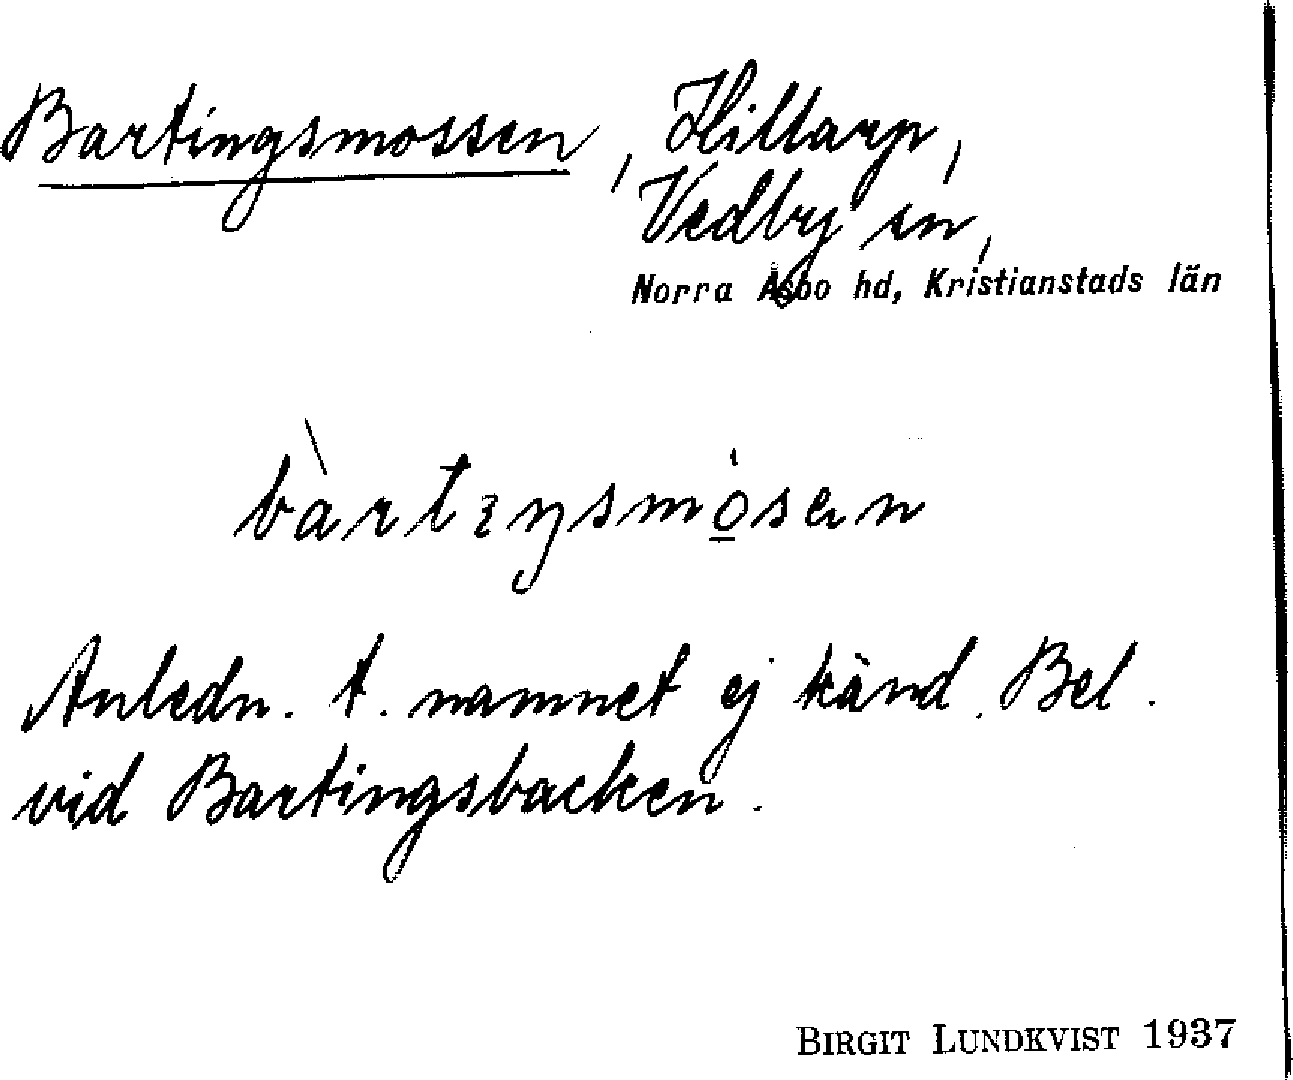 Bartingsmossen, Hillarp,
Vedby sn,
Norra Åsbo hd, Kristianstads län
Anledn. t. namnet ej känd. Bel.
vid Bartingsbacken.
BIRGIT LUNDKVIST 1937